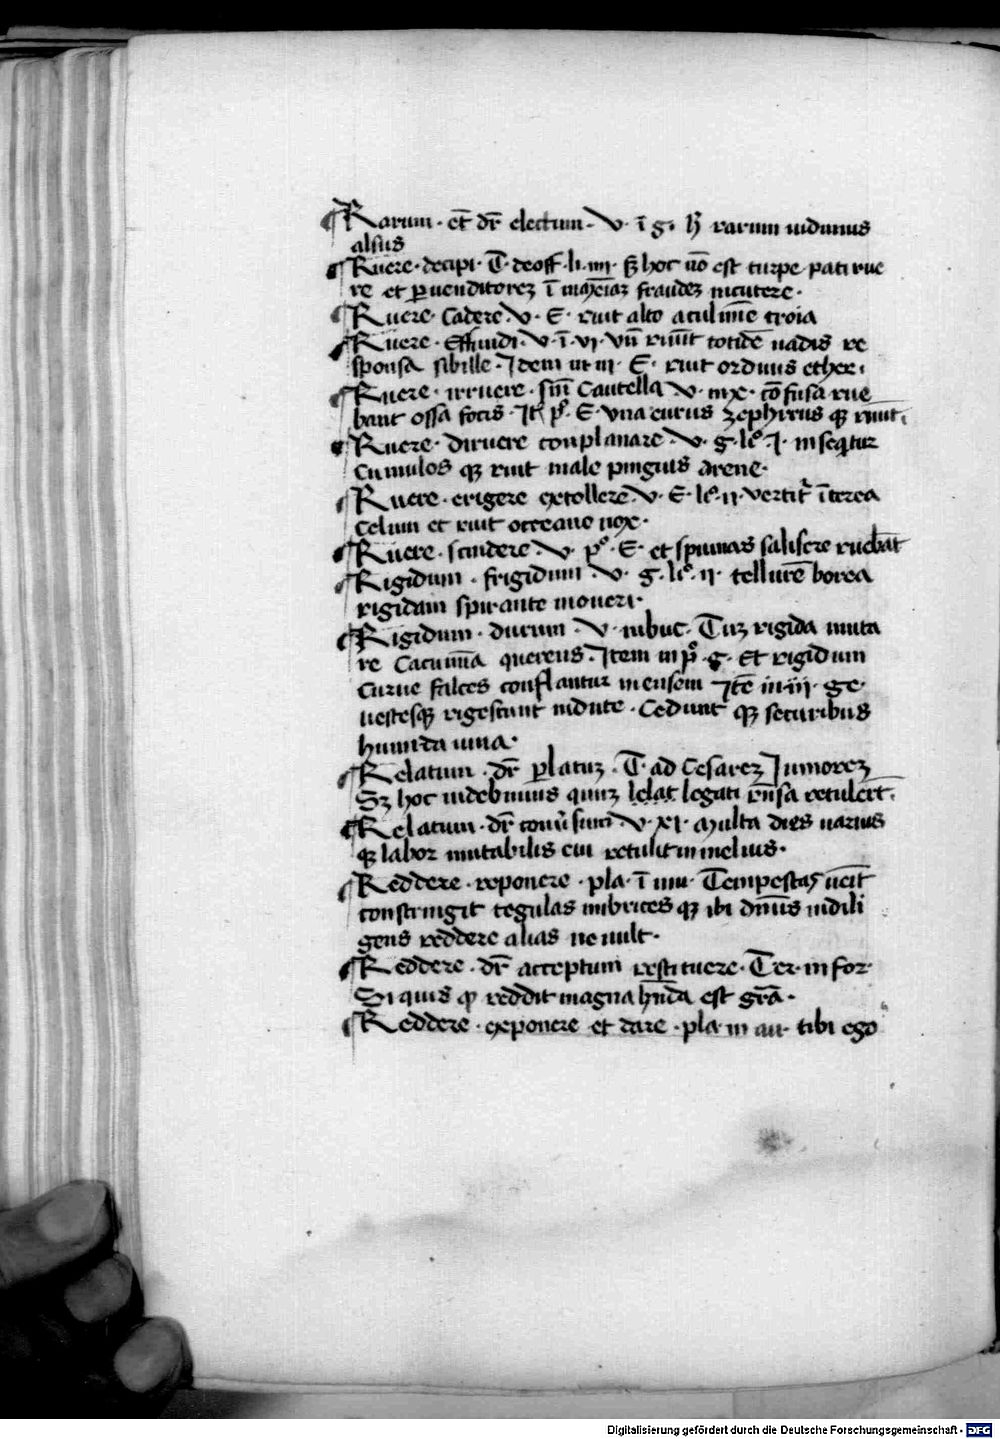 ¶ Rarum · et̄ dr̄ electum · V · ī g · h̄ rarum uidimus
alsus
¶ Ruere · decipi · T̄ · de off · li · iiii · Sꝫ hoc uo᷒ est turpe pati rue
re et ꝑ uenditoreꝫ ī fraudeꝫ incutere ·
¶ Ruere · Cadere · V · E · ruit alto a culmīe troia
¶ Ruere · Effundi · V · ī · vi · Vn̄ ruūt totidē uadis re
sponsa sibille · Idem ut iii · E · ruit ordinus ether ·
¶ Ruere · irruere · sm̄ Cautella V · cō fusa rue
bant ossa focis · It̄ pº · E · Vna eurus zephirus qꝫ ruut ·
¶ Ruere · diruere conplanare · V · g · leº · I · inseqtur
Cumulos qꝫ ruit male pinguis arene ·
¶ Ruere · erigere extollere V · E · leº · ii · vertit᷑ ītcrea
Celum et ruit occeano nox ·
¶ Ruere · scindere · V · pº · E · et spumas salis ere ruebāt
¶ Rigidum · frigidum · V · g · leº · ii · tellurē borea
rigidam spirante moueri ·
¶ Rigidum · durum · V · in buc · Tuꝫ rigida muta
re Cacumīa quercus · Item in pº · g · Et rigidum
Curue falces conflantur in ensem Itē in iii · ge ·
uestesqꝫ rigescunt indute · Cedunt qꝫ securibus
humida uina ·
¶ Relatum · dr̄ ꝑlatuꝫ · T̄ · ad Cesareꝫ Iuniorem
Sꝫ hoc uidebimus quuꝫ lelat legati rn̄sa retulerīt ·
¶ Relatum · dr̄ V · XI · Multa dies uarius
qꝫ labor mutabilis eui retulit in melius ·
¶ Reddere · reponere · pla · ī mu · Tempestas ueīt
constringit tegulas inbrices qꝫ ibi dn̄us indili
gens reddere alias ne uult ·
¶ Reddere · dr̄ acceptum restituere · Ter · in for ·
Si quis qͦ reddit magna hn̄da est gr̄a ·
¶ Reddere · exponere et dare · pla · in au · tibi ego
Digitalisierung gefördert durch die Deutsche Forschungsgemeinschaft - DFG